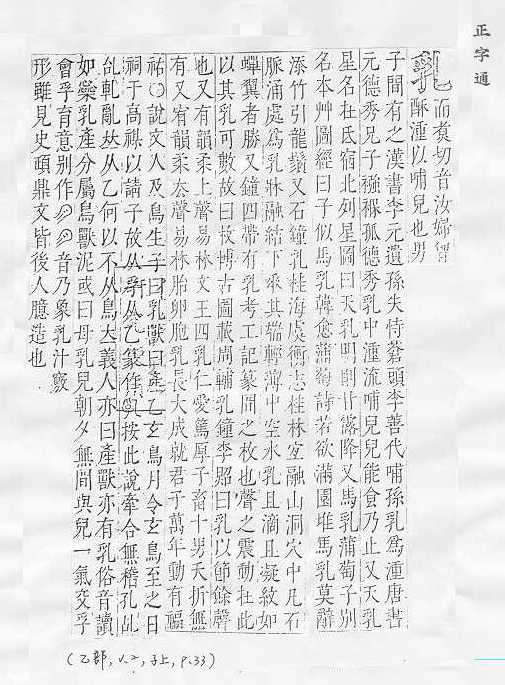 正字通
乳 而煑切音汝婦稱
酥湩以哺兒也男
子間有之漢書李元遺孫失恃蒼頭李善代哺孫乳爲湩唐書
元德秀兄子襁褓孤德秀乳中湩流哺兒兒能食乃止又天乳
星名在氐宿北列星圖曰天乳明則甘露降又馬乳蒲萄子別
名本艸圖經曰子似馬乳韓愈蒲萄詩若欲滿園堆馬乳莫辭
添竹引龍鬚又石鐘乳桂海虞衡志桂林宜融山洞穴中凡石
脈涌處爲乳牀融結下乘其端輕薄中空水乳且滴且凝紋如
蟬翼者勝又鐘四帶有乳考工記篆間之枚也聲之震動在此
以其乳可數故曰枚博古圖載周輔乳鐘李照曰乳以節餘聲
也又有韻柔上聲易林文王四乳仁愛篤厚子畜十男夭折無
有又宥韻柔去聲易林胎卵胞乳長大成就君子萬年動有福
祐○說文人及鳥生子曰乳獸曰產乙玄鳥月令玄鳥至之日
祠于高禖以請子故从孚从乙篆作按此說牽合無稽孔
軋亂𠀤从乙何以不从鳥大義人亦曰產獸亦有乳俗音讀
如欒乳產分屬鳥獸泥或曰母乳兒朝夕無間與兒一氣交孚
會孚育意別作音乃象乳汁竅
形雖見史頑鼎文皆後人臆造也
(乙部, v.2, 子上, p.33)